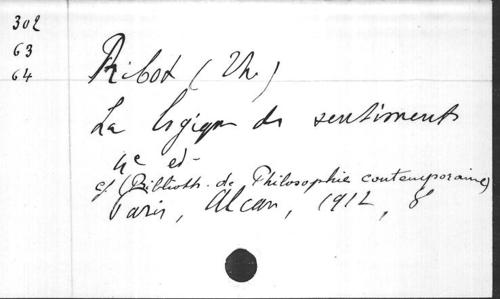 302
63
64
Ribot (Th.)
La logique des sentiments
4e ed-
cf (Biblioth. de Philosophie contemporaine)
Paris, Alcan, 1912, 8